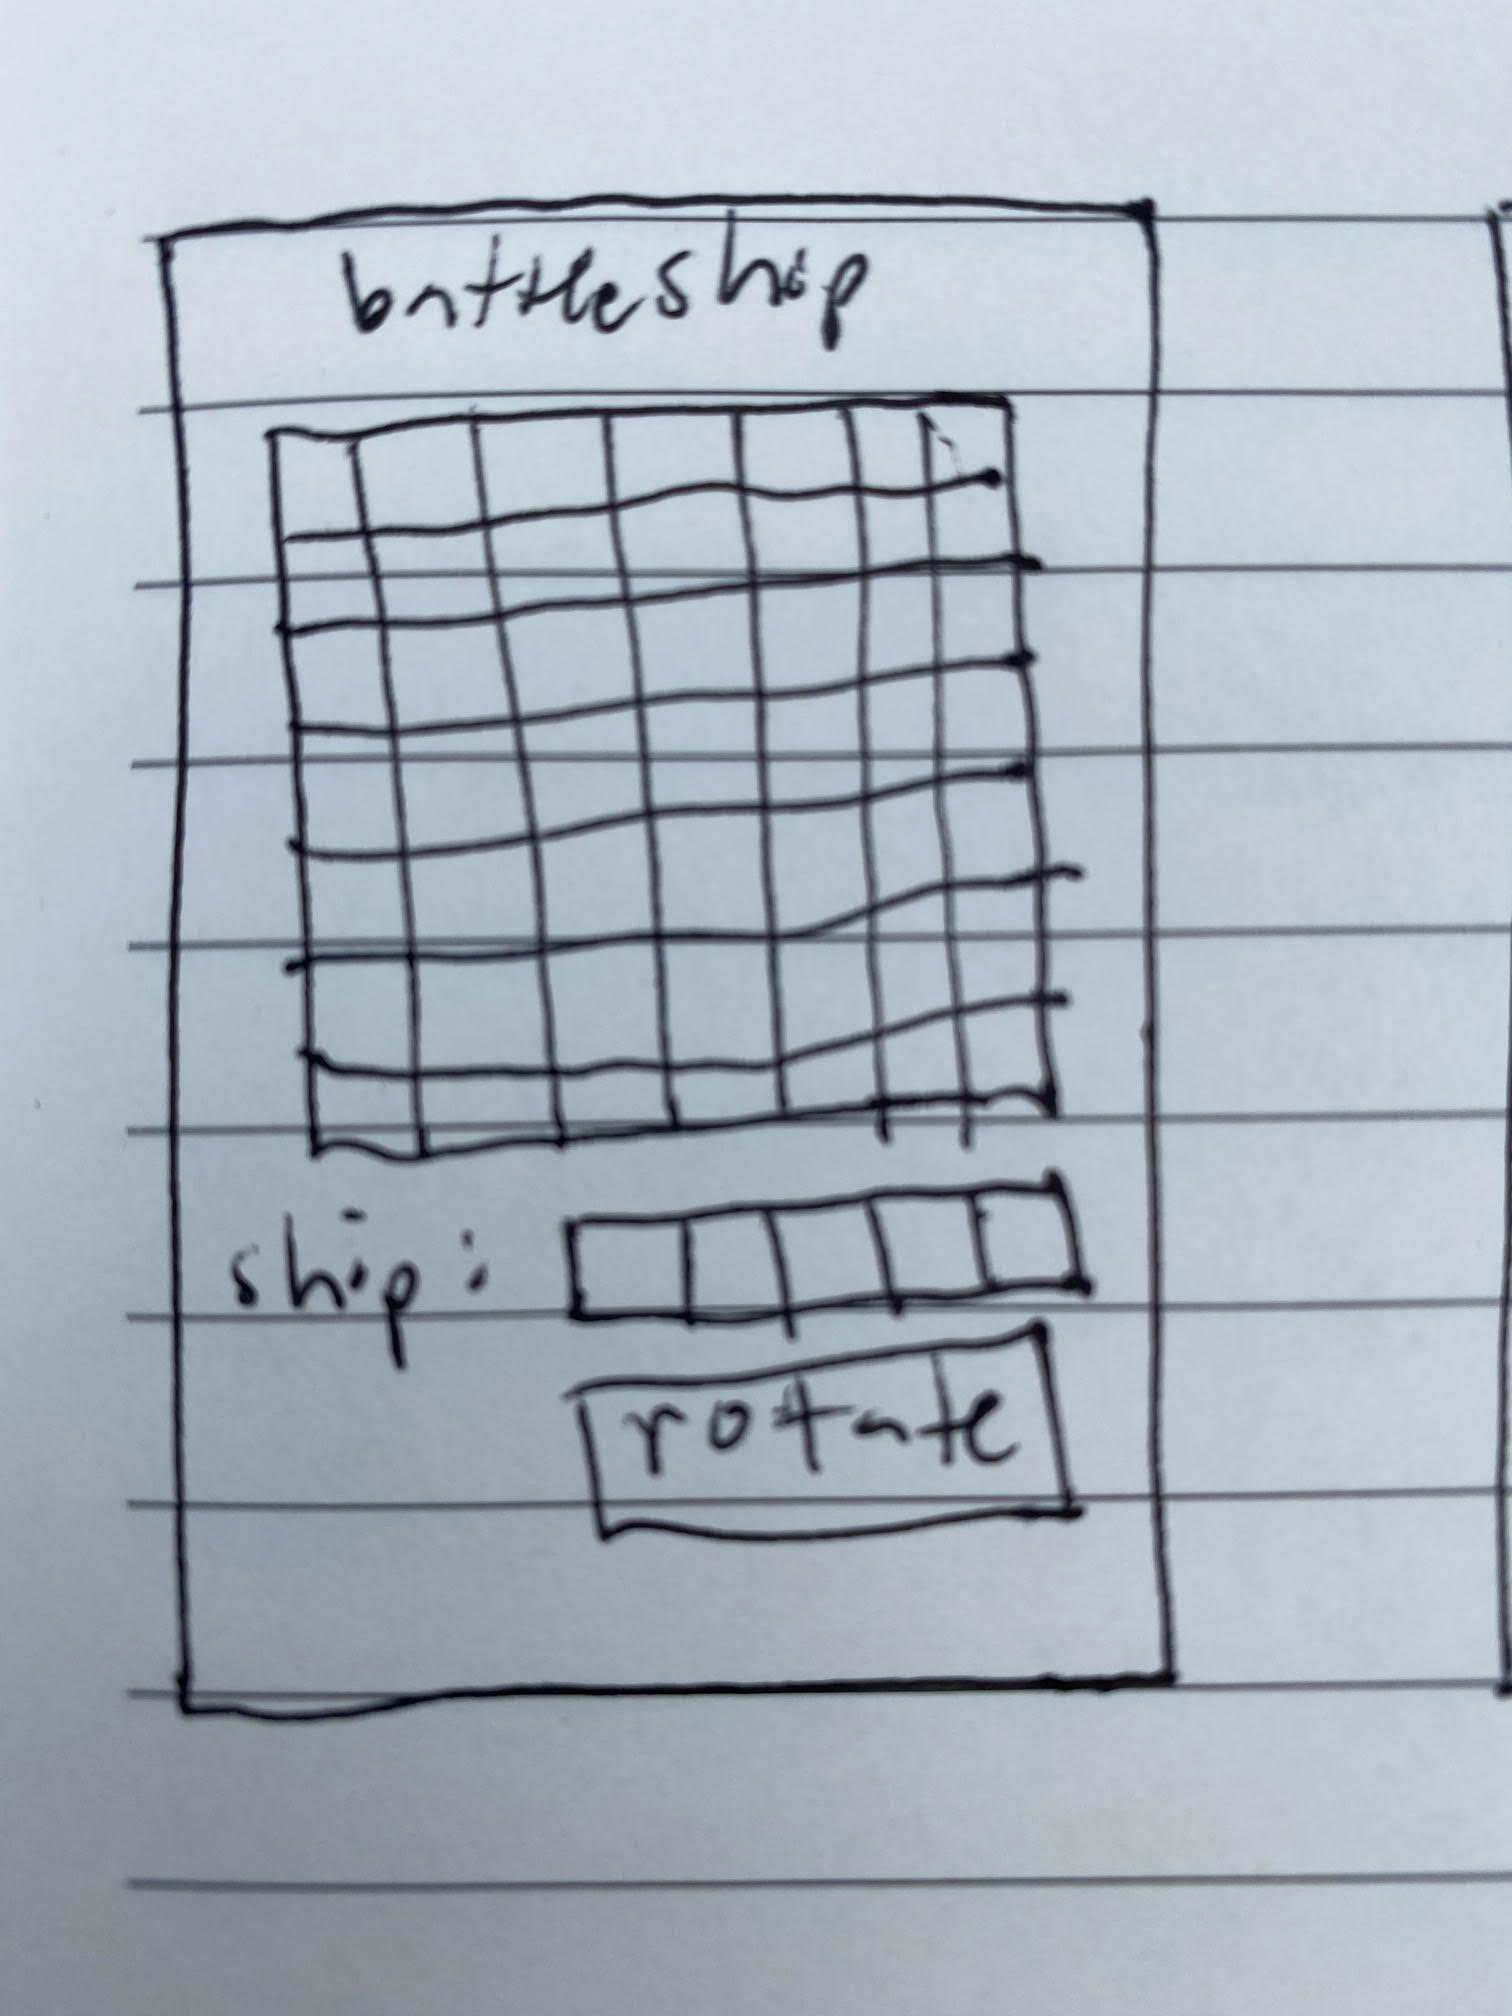 battleship
ship:
rotate